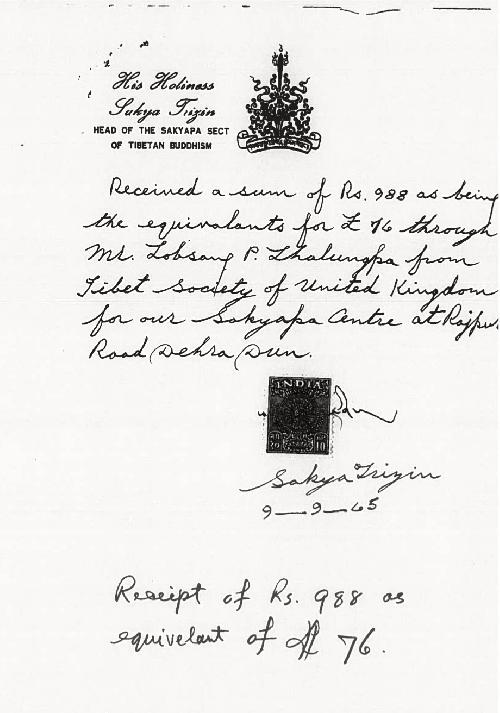 His Holiness
Sakya Trizin
HEAD OF THE SAKYAPA SECT
OF TIBETAN BUDDHISM
Received a sum of Rs. 988 as being
the equivalants for £ 76 through
Mr. Lobsang P. Lhalungpa from
Tibet Society of United Kingdom
for our Sakyapa Centre at Rajpur
Road Dehra Dun.
INDIA
10
Sakya Trizin
9—9—65
Receipt of Rs. 988 as
equivelant of £ 76.